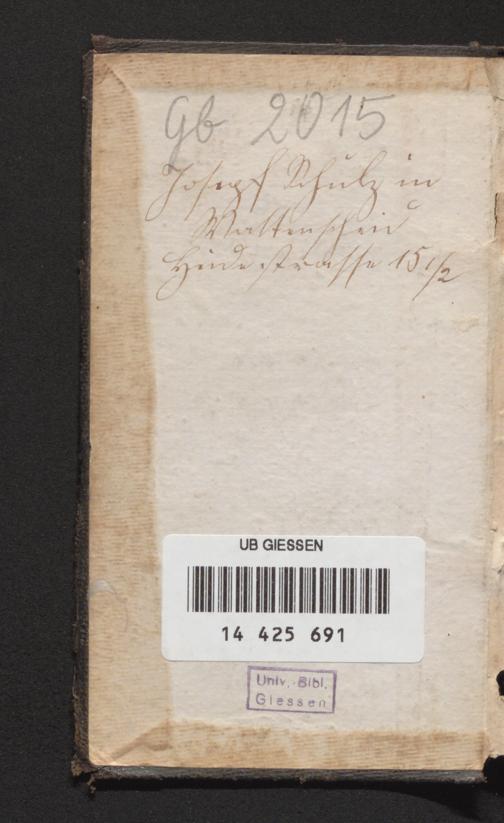 Gb 2015
Joseph Schulz in
Wattenscheid
Heidestrasse 15 1/2
UB GIESSEN
14 425 691
Univ.-Bibl.
Giessen